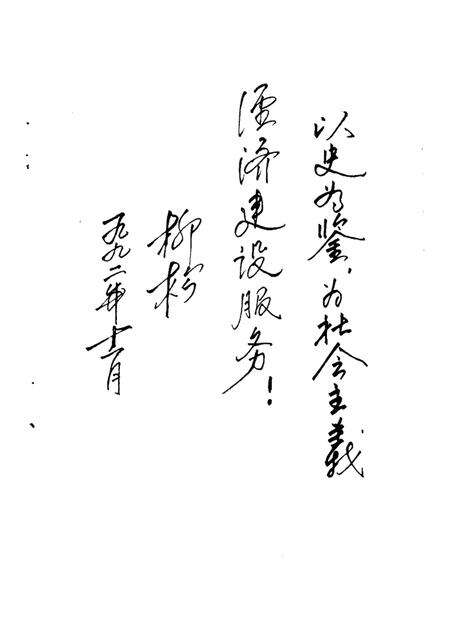 以史为鉴，为社会主義
经济建设服务！
柳
一九九二年十二月